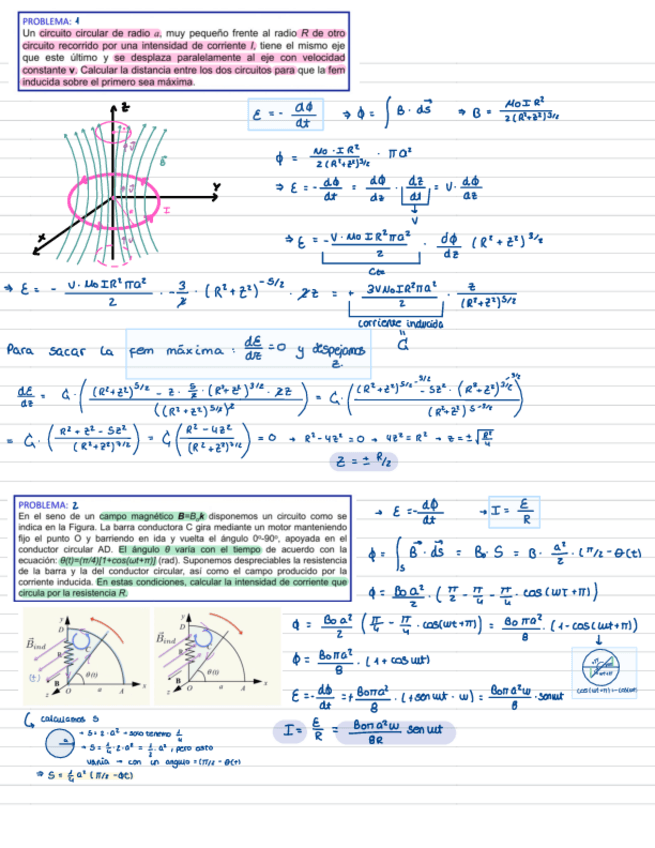 PROBLEMA: 1
Un circuito circular de radio a, muy pequeño frente al radio R de otro
circuito recorrido por una intensidad de corriente I, tiene el mismo eje
que este último y se desplaza paralelamente al eje con velocidad
constante v. Calcular la distancia entre los dos circuitos para que la fem
inducida sobre el primero sea máxima.
ε = - dϕ/dt ⇒ ϕ = ∫ B · ds ⇒ B = μo I R² / 2(R²+z²)^3/2
z
Y
X
I
ϕ = μo · I R² / 2(R²+z²)^3/2 · πa²
⇒ ε = - dϕ/dt = dϕ/dz · dz/dt = v · dϕ/dz
v
⇒ ε = - v · μo I R² πa² / 2 · dϕ/dz (R²+z²)^3/2
Cte
⇒ ε = - v · μo I R² πa² / 2 · -3/2 · (R²+z²)^-5/2 · 2z = + 3vμo I R² πa² / 2 · z / (R²+z²)^5/2
corriente inducida
Para sacar la fem máxima : dε/dz = 0 y despejamos
z.
= 0 → R²-4z² = 0 → 4z² = R² → z = ± √R²/4
z = ± R/2
PROBLEMA: 2
En el seno de un campo magnético B=B₀k disponemos un circuito como se
indica en la Figura. La barra conductora C gira mediante un motor manteniendo
fijo el punto O y barriendo en ida y vuelta el ángulo 0º-90º, apoyada en el
conductor circular AD. El ángulo θ varía con el tiempo de acuerdo con la
ecuación: θ(t)=(π/4)[1+cos(ωt+π)] (rad). Suponemos despreciables la resistencia
de la barra y la del conductor circular, así como el campo producido por la
corriente inducida. En estas condiciones, calcular la intensidad de corriente que
circula por la resistencia R.
→ ε = - dϕ/dt → I = ε/R
ϕ = ∫s B · ds = Bo · S = B · a²/2 · (π/2 - θ(t))
ϕ = Bo a²/2 · (π/2 - π/4 - π/4 · cos(ωt+π))
ϕ = Bo a²/2 (π/4 - π/4 · cos(ωt+π)) = Bo πa²/8 · (1-cos(ωt+π))
ϕ = Bo πa²/8 · (1 + cos ωt)
ε = - dϕ/dt = + Bo πa²/8 · (+sen ωt · ω) = Bo πa²ω/8 · sen ωt
I = ε/R = Bo πa²ω/8R sen ωt
B ind
D
R
θ(t)
O
a
A
x
y
z
B ind
D
θ(t)
O
a
A
x
y
z
calculamos S
varía → con un angulo = (π/2 - θ(t))